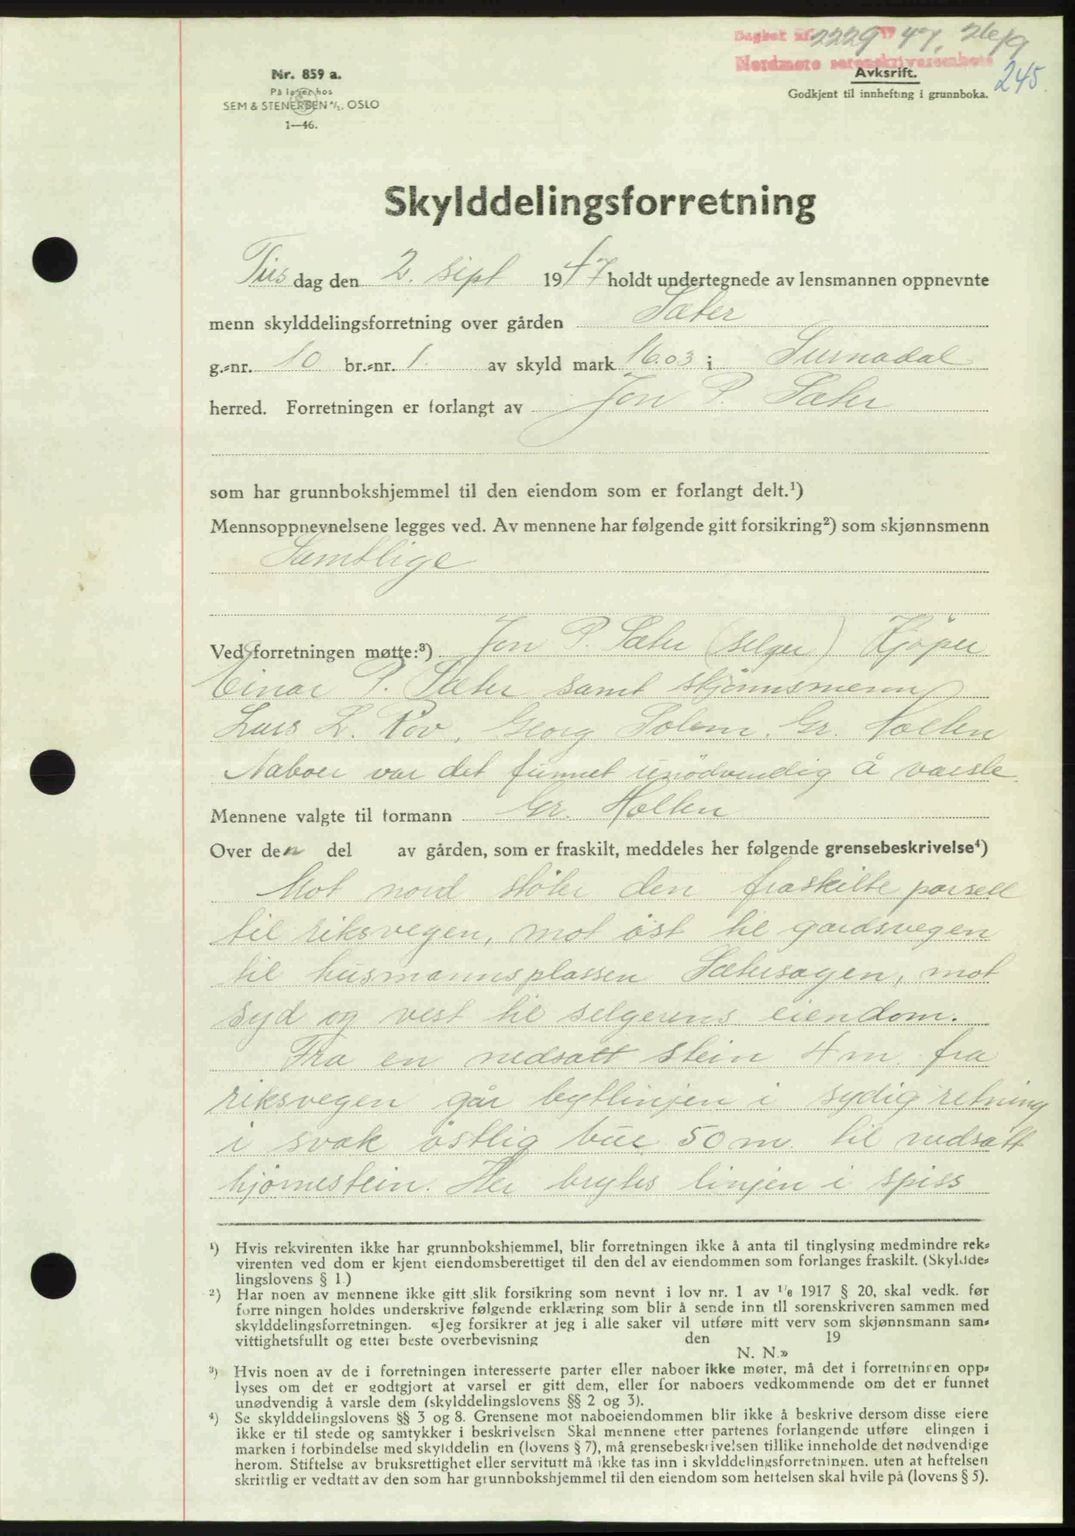 2229 47, 26/9
Nordmøre sorenskriverembete
Nr. 859 a.
Avskrift.
245.
På lager hos
SEM & STENERSEN A/S. OSLO
Godkjent til innhefting i grunnboka.
1—46.
Skylddelingsforretning
Tirs dag den 2. sept 1947 holdt undertegnede av lensmannen oppnevnte
menn skylddelingsforretning over gården Sæter
g.-nr. 10 br.-nr. 1. av skyld mark 16.03 i Surnadal
herred. Forretningen er forlangt av Jon P. Sæter
som har grunnbokshjemmel til den eiendom som er forlangt delt.¹)
Mennsoppnevnelsene legges ved. Av mennene har følgende gitt forsikring²) som skjønnsmenn
Samtlige
Ved forretningen møtte:³) Jon P. Sæter (selger) Kjøper
Einar P. Sæter samt skjønnsmenn
Lars L. Rov, Georg Solem, Gr. Holten
Naboer var det funnet unødvendig å varsle.
Mennene valgte til formann Gr. Holten
Over den del av gården, som er fraskilt, meddeles her følgende grensebeskrivelse⁴)
Mot nord støter den fraskilte parsell
til riksvegen, mot øst til gardsvegen
til husmannsplassen Sætersagen, mot
syd og vest til selgerens eiendom.
Fra en nedsatt stein 4 m. fra
riksvegen går bytlinjen i sydig retning
i svak østlig bue 50 m. til nedsatt
hjørnestein. Her brytes linjen i spiss
¹) Hvis rekvirenten ikke har grunnbokshjemmel, blir forretningen ikke å anta til tinglysing medmindre rek-
virenten ved dom er kjent eiendomsberettiget til den del av eiendommen som forlanges fraskilt. (Skyldde-
lingslovens § 1.)
²) Har noen av mennene ikke gitt slik forsikring som nevnt i lov nr. 1 av 1/6 1917 § 20, skal vedk. før
forretningen holdes underskrive følgende erklæring som blir å sende inn til sorenskriveren sammen med
skylddelingsforretningen. «Jeg forsikrer at jeg i alle saker vil utføre mitt verv som skjønnsmann sam-
vittighetsfullt og etter beste overbevisning den 19
N. N.»
³) Hvis noen av de i forretningen interesserte parter eller naboer ikke møter, må det i forretningen opp-
lyses om det er godtgjort at varsel er gitt dem, eller for naboers vedkommende om det er funnet
unødvendig å varsle dem (skylddelingslovens §§ 2 og 3).
⁴) Se skylddelingslovens §§ 3 og 8. Grensene mot naboeiendommen blir ikke å beskrive dersom disse eiere
ikke er til stede og samtykker i beskrivelsen Skal mennene etter partenes forlangende utføre elingen i
marken i forbindelse med skylddelin en (lovens § 7), må grensebeskrivelsen tillike inneholde det nødvendige
herom. Stiftelse av bruksrettighet eller servitutt må ikke tas inn i skylddelingsforretningen, uten at heftelsen
skriftlig er vedtatt av den som har grunnbokshjemmel til den eiendom som heftelsen skal hvile på (lovens § 5).